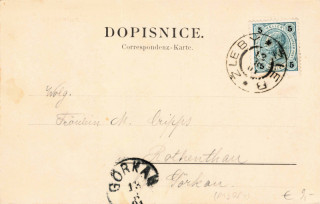 DOPISNICE.
Correspondenz-Karte.
5 5
ZLEB
Wolg.
Fräulein M. Cripps
Rothenthau
Görkau.
GÖRKAU
13
6
€ 3,-